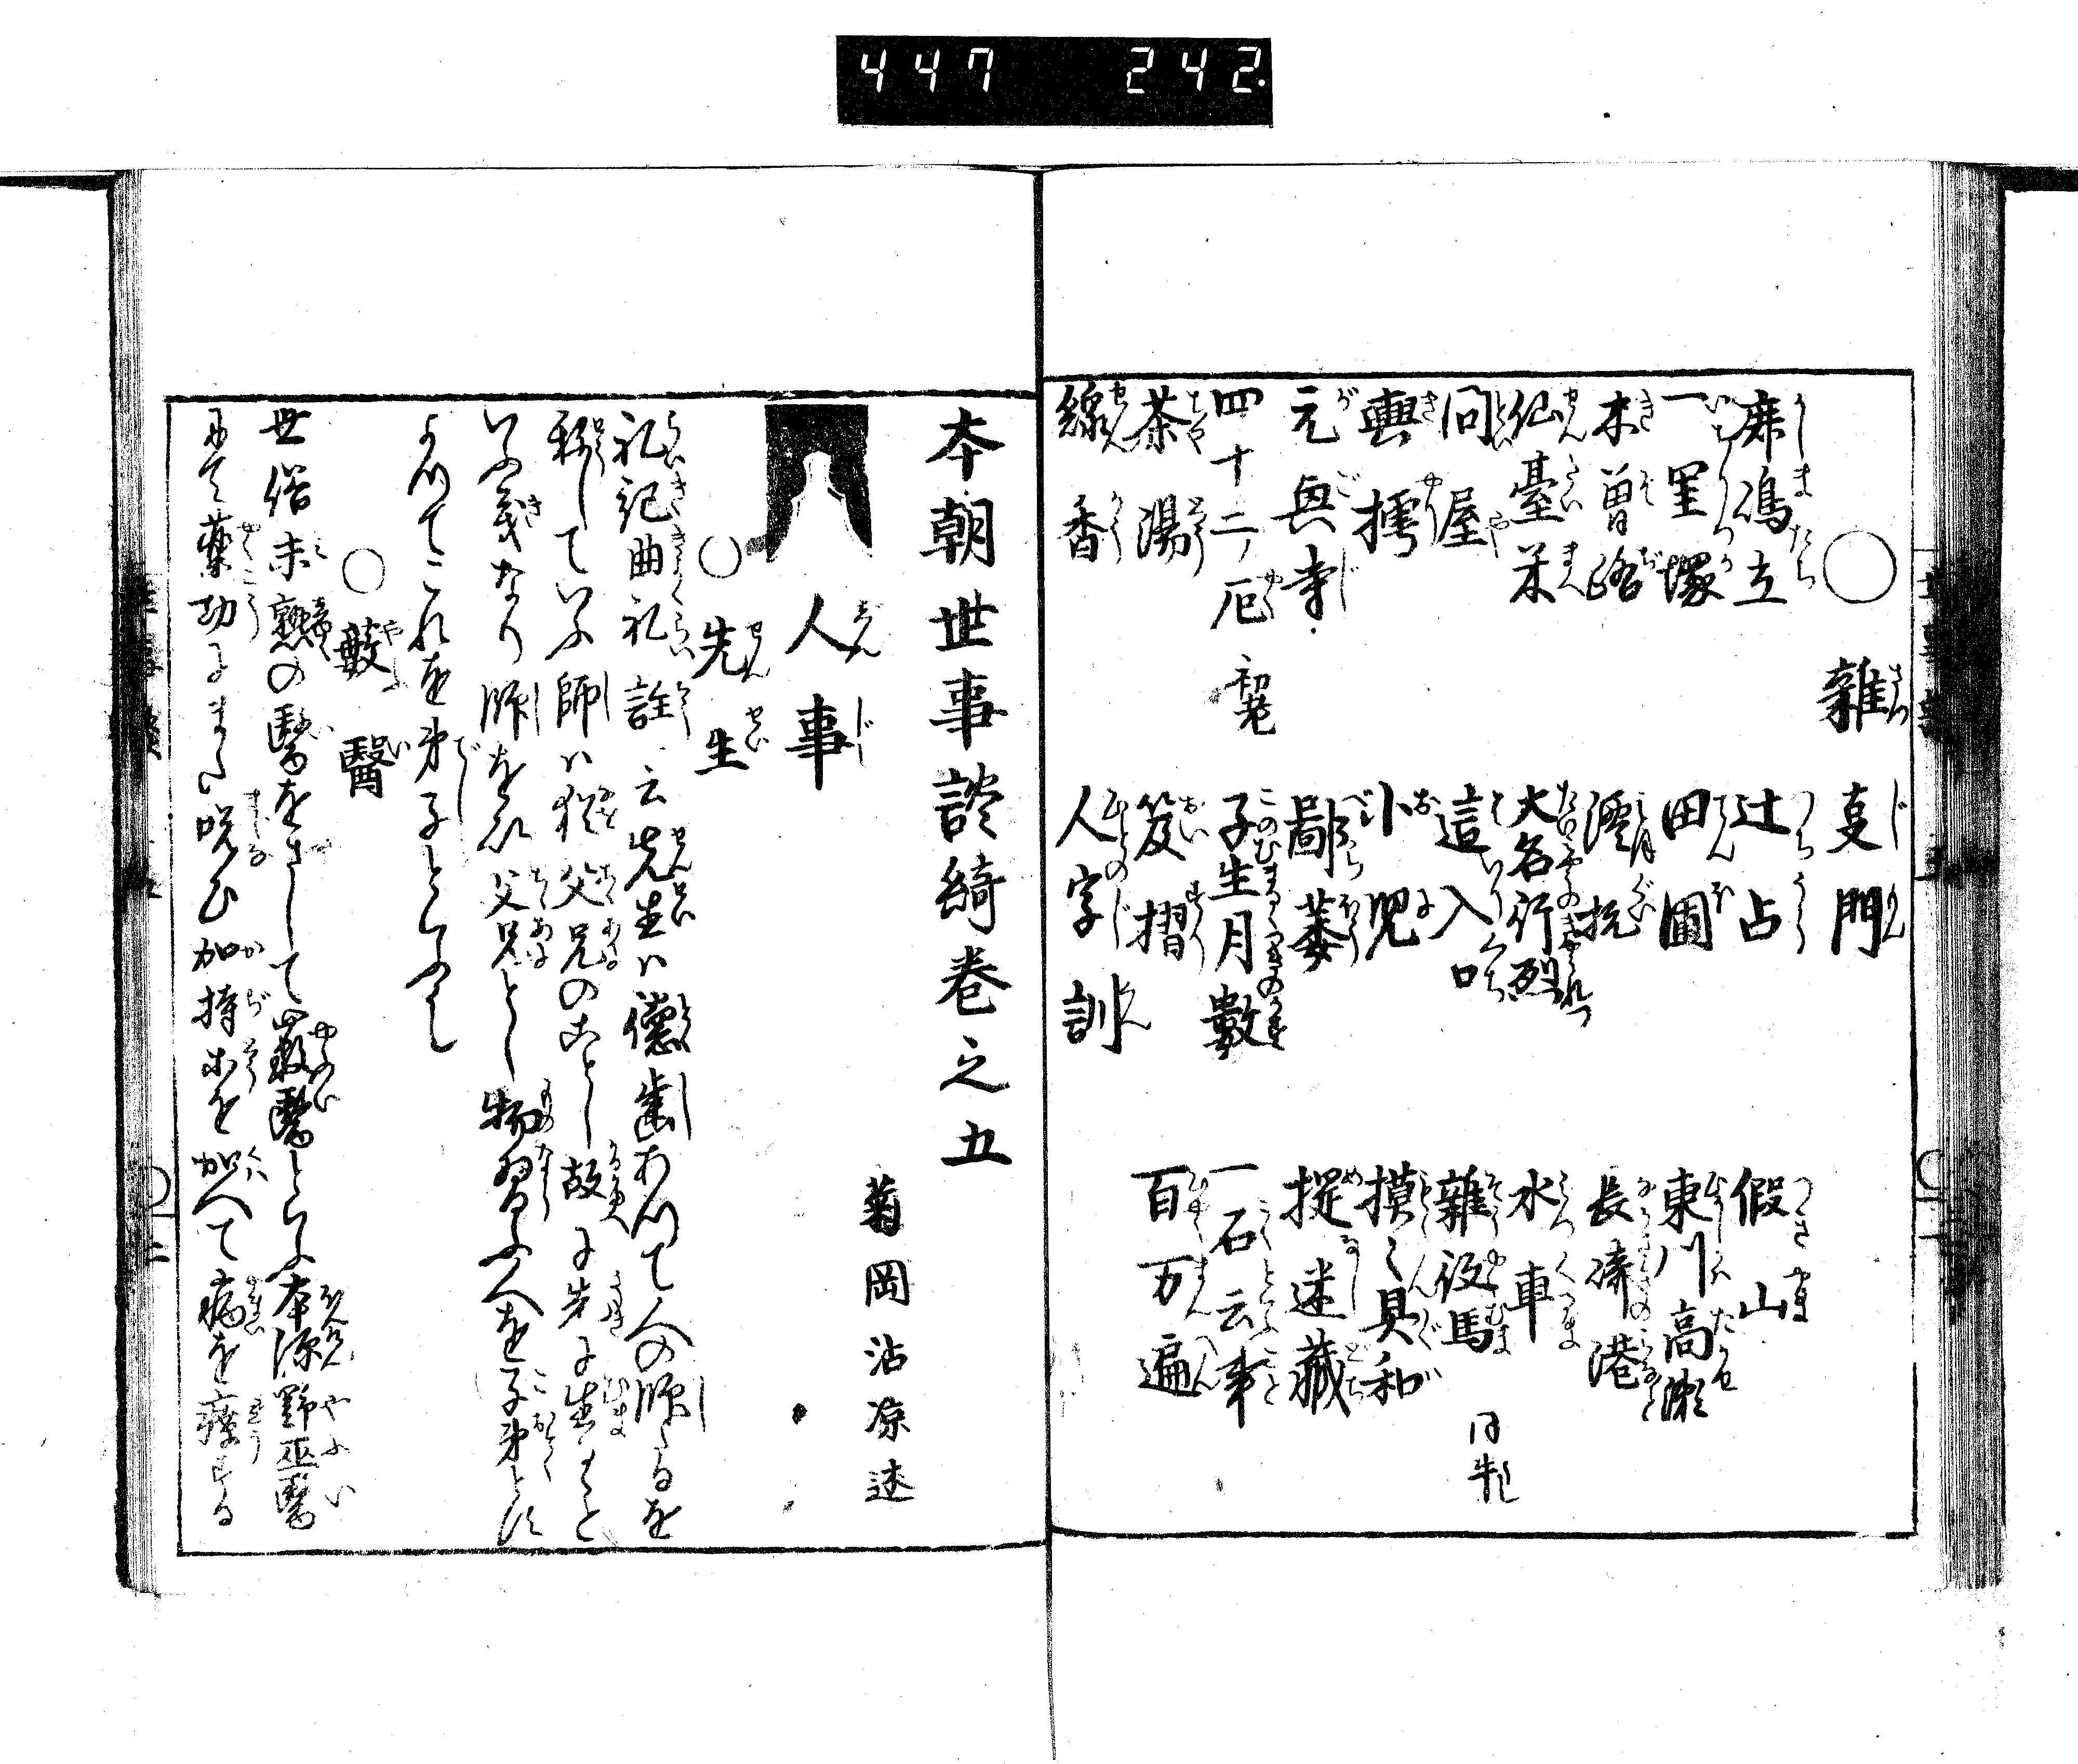 447 242.
○雜㕝門
麻嶋立 辻占 假山
一里塚 田圃 東川高瀬
木曽路 湮杭 長濤港
仙臺米 大名行烈 水車
問屋 這入口 雜役馬 同牛
輿擣 小児 摸々具和
元興寺 鄙萎 捉迷藏
四十二ノ厄 子生月數 一石云事
茶湯 笈摺 百万遍
線香 人字訓
本朝世事談綺巻之五
菊岡沾凉述
人事
○先生
礼記曲礼註ニ云先生ハ徳歯あつて人の師たるを
称していふ師ハ猶父兄のごとし故に先に生ると
いふ義なり師を父兄とし物習ふ人を子弟とす
よつてこれを弟子といふ
○藪醫
世俗未熟の醫をさして藪醫といふ本源野巫醫
にて薬功にまじなひ加持等を加へて病を療する